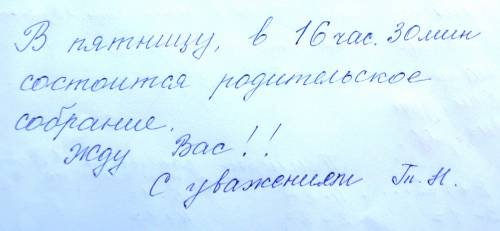 В пятницу, в 16 час. 30 мин
состоится родительское
собрание.
Жду Вас!!
С уважением Т. Н.